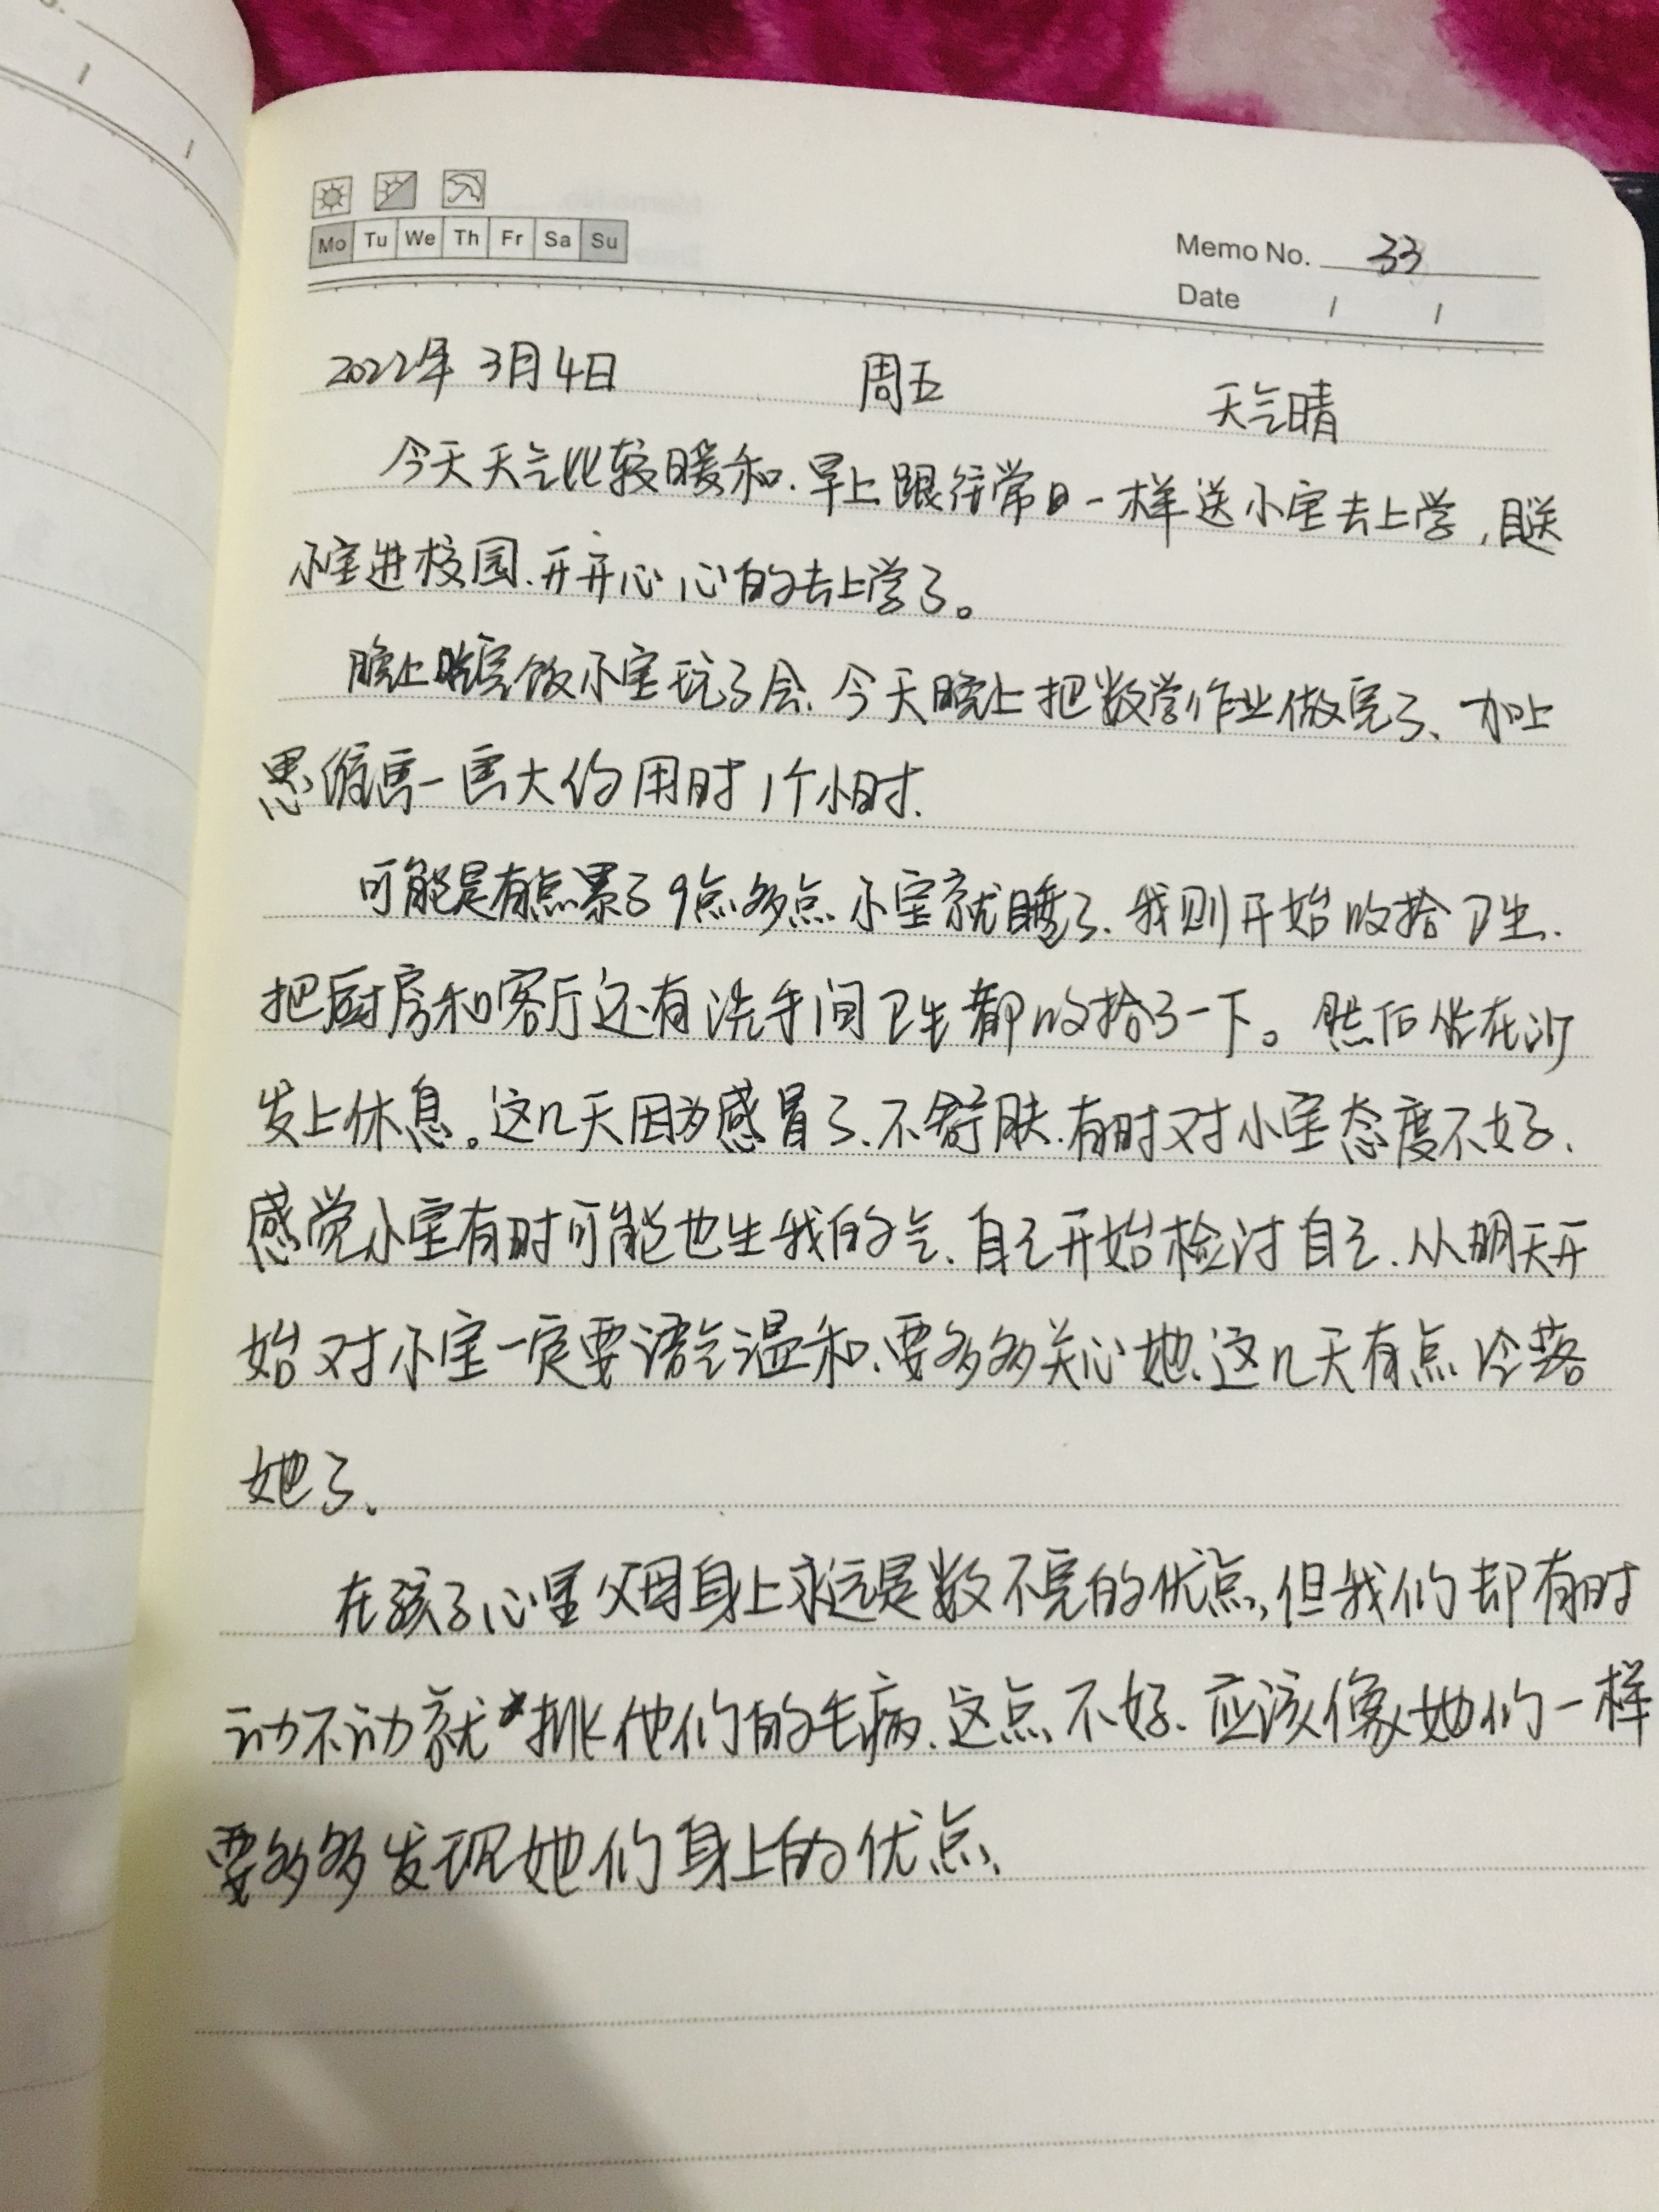 Mo Tu We Th Fr Sa Su
Memo No. 33
Date / /
2022年 3月4日 周五 天气晴
今天天气比较暖和.早上跟往常日一样送小宝去上学,目送
小宝进校园.开开心心的去上学了。
晚上吃完饭小宝玩了会.今天晚上把数学作业做完了、加上
思维画一画大约用时1个小时.
可能是有点累了9点多点小宝就睡了.我则开始收拾卫生.
把厨房和客厅还有洗手间卫生都收拾了一下。然后坐在沙
发上休息。这几天因为感冒了.不舒肤.有时对小宝态度不好.
感觉小宝有时可能也生我的气.自己开始检讨自己.从明天开
始对小宝一定要语气温和.要多多关心她.这几天有点冷落
她了.
在孩子心里父母身上永远是数不完的优点,但我们却有时
动不动就挑他们的毛病.这点不好.应该像她们一样
要多多发现她们身上的优点.